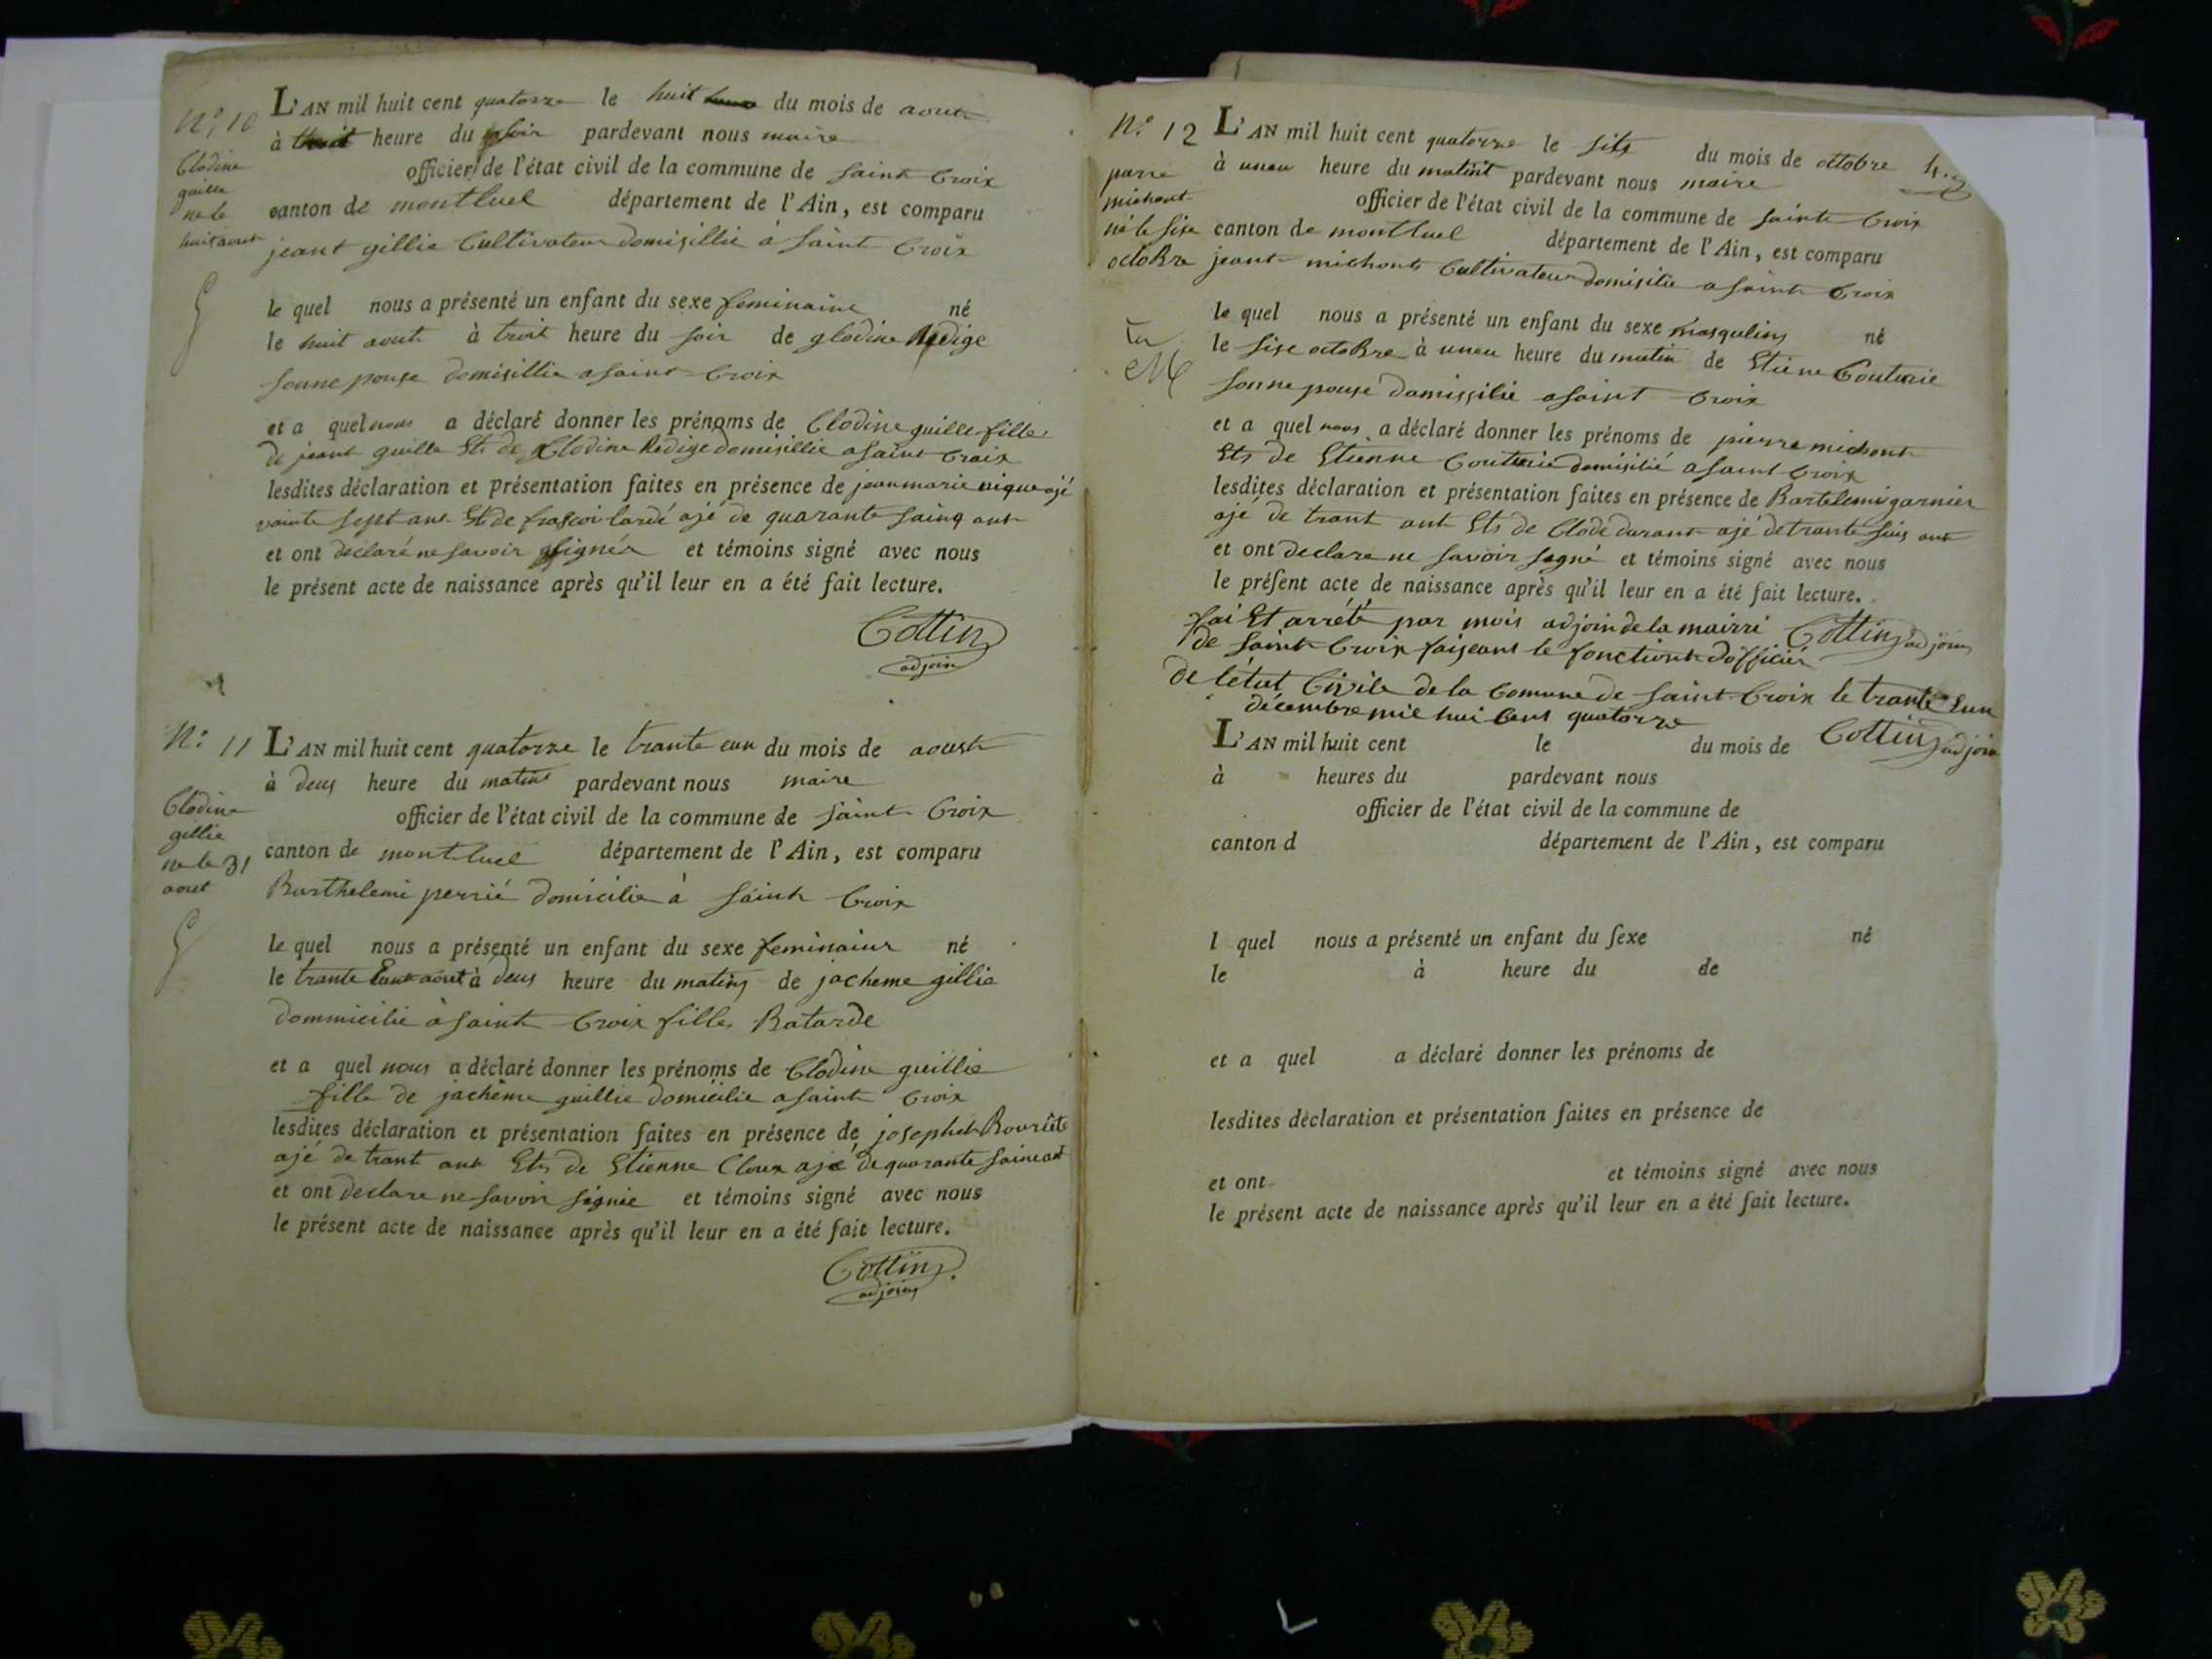 N.° 10
Clodine
guille
ne le
huit aout
L'AN mil huit cent quatorze le huit du mois de aout
à troit heure du soir pardevant nous maire
officier de l'état civil de la commune de saint Croix
canton de montluel département de l'Ain, est comparu
jeant gillie Cultivateur domisillié à saint Croix
le quel nous a présenté un enfant du sexe feminaine né
le huit aout à troit heure du soir de glodine Redige
sonne pouse domisillie a saint Croix
et a quel nous a déclaré donner les prénoms de Clodine guille fille
de jeant guille Et de Clodine Redige domisillie a saint Croix
lesdites déclaration et présentation faites en présence de jean marie aigue ajé
vainte sept ans Et de frascoi lardé ajé de quarante sainq ant
et ont declaré ne savoir signér et témoins signé avec nous
le présent acte de naissance après qu'il leur en a été fait lecture.
Cottin
adjoin
N.° 11
Clodine
gillie
ne le 31
aout
L'AN mil huit cent quatorze le trante eun du mois de aoust
à deus heure du matins pardevant nous maire
officier de l'état civil de la commune de saint Croix
canton de montluel département de l'Ain, est comparu
Barthelemi perrié domicilie à saint Croix
le quel nous a présenté un enfant du sexe feminains né
le trante Eun aout à deus heure du matins de jacheme gillie
dommicilie à saint Croix fille Batarde
et a quel nous a déclaré donner les prénoms de Clodine guillie
fille de jachème guillie domicilie a saint Croix
lesdites déclaration et présentation faites en présence de josephet Bourite
ajé de trant ant Ets de Etienne Cloux ajé de quarante saint ant
et ont declare ne savoir signie et témoins signé avec nous
le présent acte de naissance après qu'il leur en a été fait lecture.
Cottin
adjoin
N.° 12
pierre
michont
né le sise
octoBre
L'AN mil huit cent quatorze le sits du mois de octobre
à uneu heure du matint pardevant nous maire
officier de l'état civil de la commune de saint Croix
canton de montluel département de l'Ain, est comparu
jeant michont Cultivateur domisilie a saint Croix
le quel nous a présenté un enfant du sexe masqulins né
le sise octoBre à uneu heure du matin de Etiene Couturie
sonne pouse domissilie a saint Croix
et a quel nous a déclaré donner les prénoms de pierre michont
Ets de Etienne Couturie domisilié a saint Croix
lesdites déclaration et présentation faites en présence de Bartelemi garnier
ajé de trant ant Ets de Clode durant ajé de trante sins ant
et ont declare ne savoir segné et témoins signé avec nous
le présent acte de naissance après qu'il leur en a été fait lecture.
fai Et arrété par mois adjoin de la mairri Cottin adjoin
de saint Croix faiseant le fonctiont d'officiér
de l'état Civile de la Comune de saint Croix le trante Eun
décembre mil hui Cent quatorze
Cottin adjoin
L'AN mil huit cent le du mois de
à heures du pardevant nous
officier de l'état civil de la commune de
canton d département de l'Ain, est comparu
l quel nous a présenté un enfant du sexe né
le à heure du de
et a quel a déclaré donner les prénoms de
lesdites déclaration et présentation faites en présence de
et ont et témoins signé avec nous
le présent acte de naissance après qu'il leur en a été fait lecture.